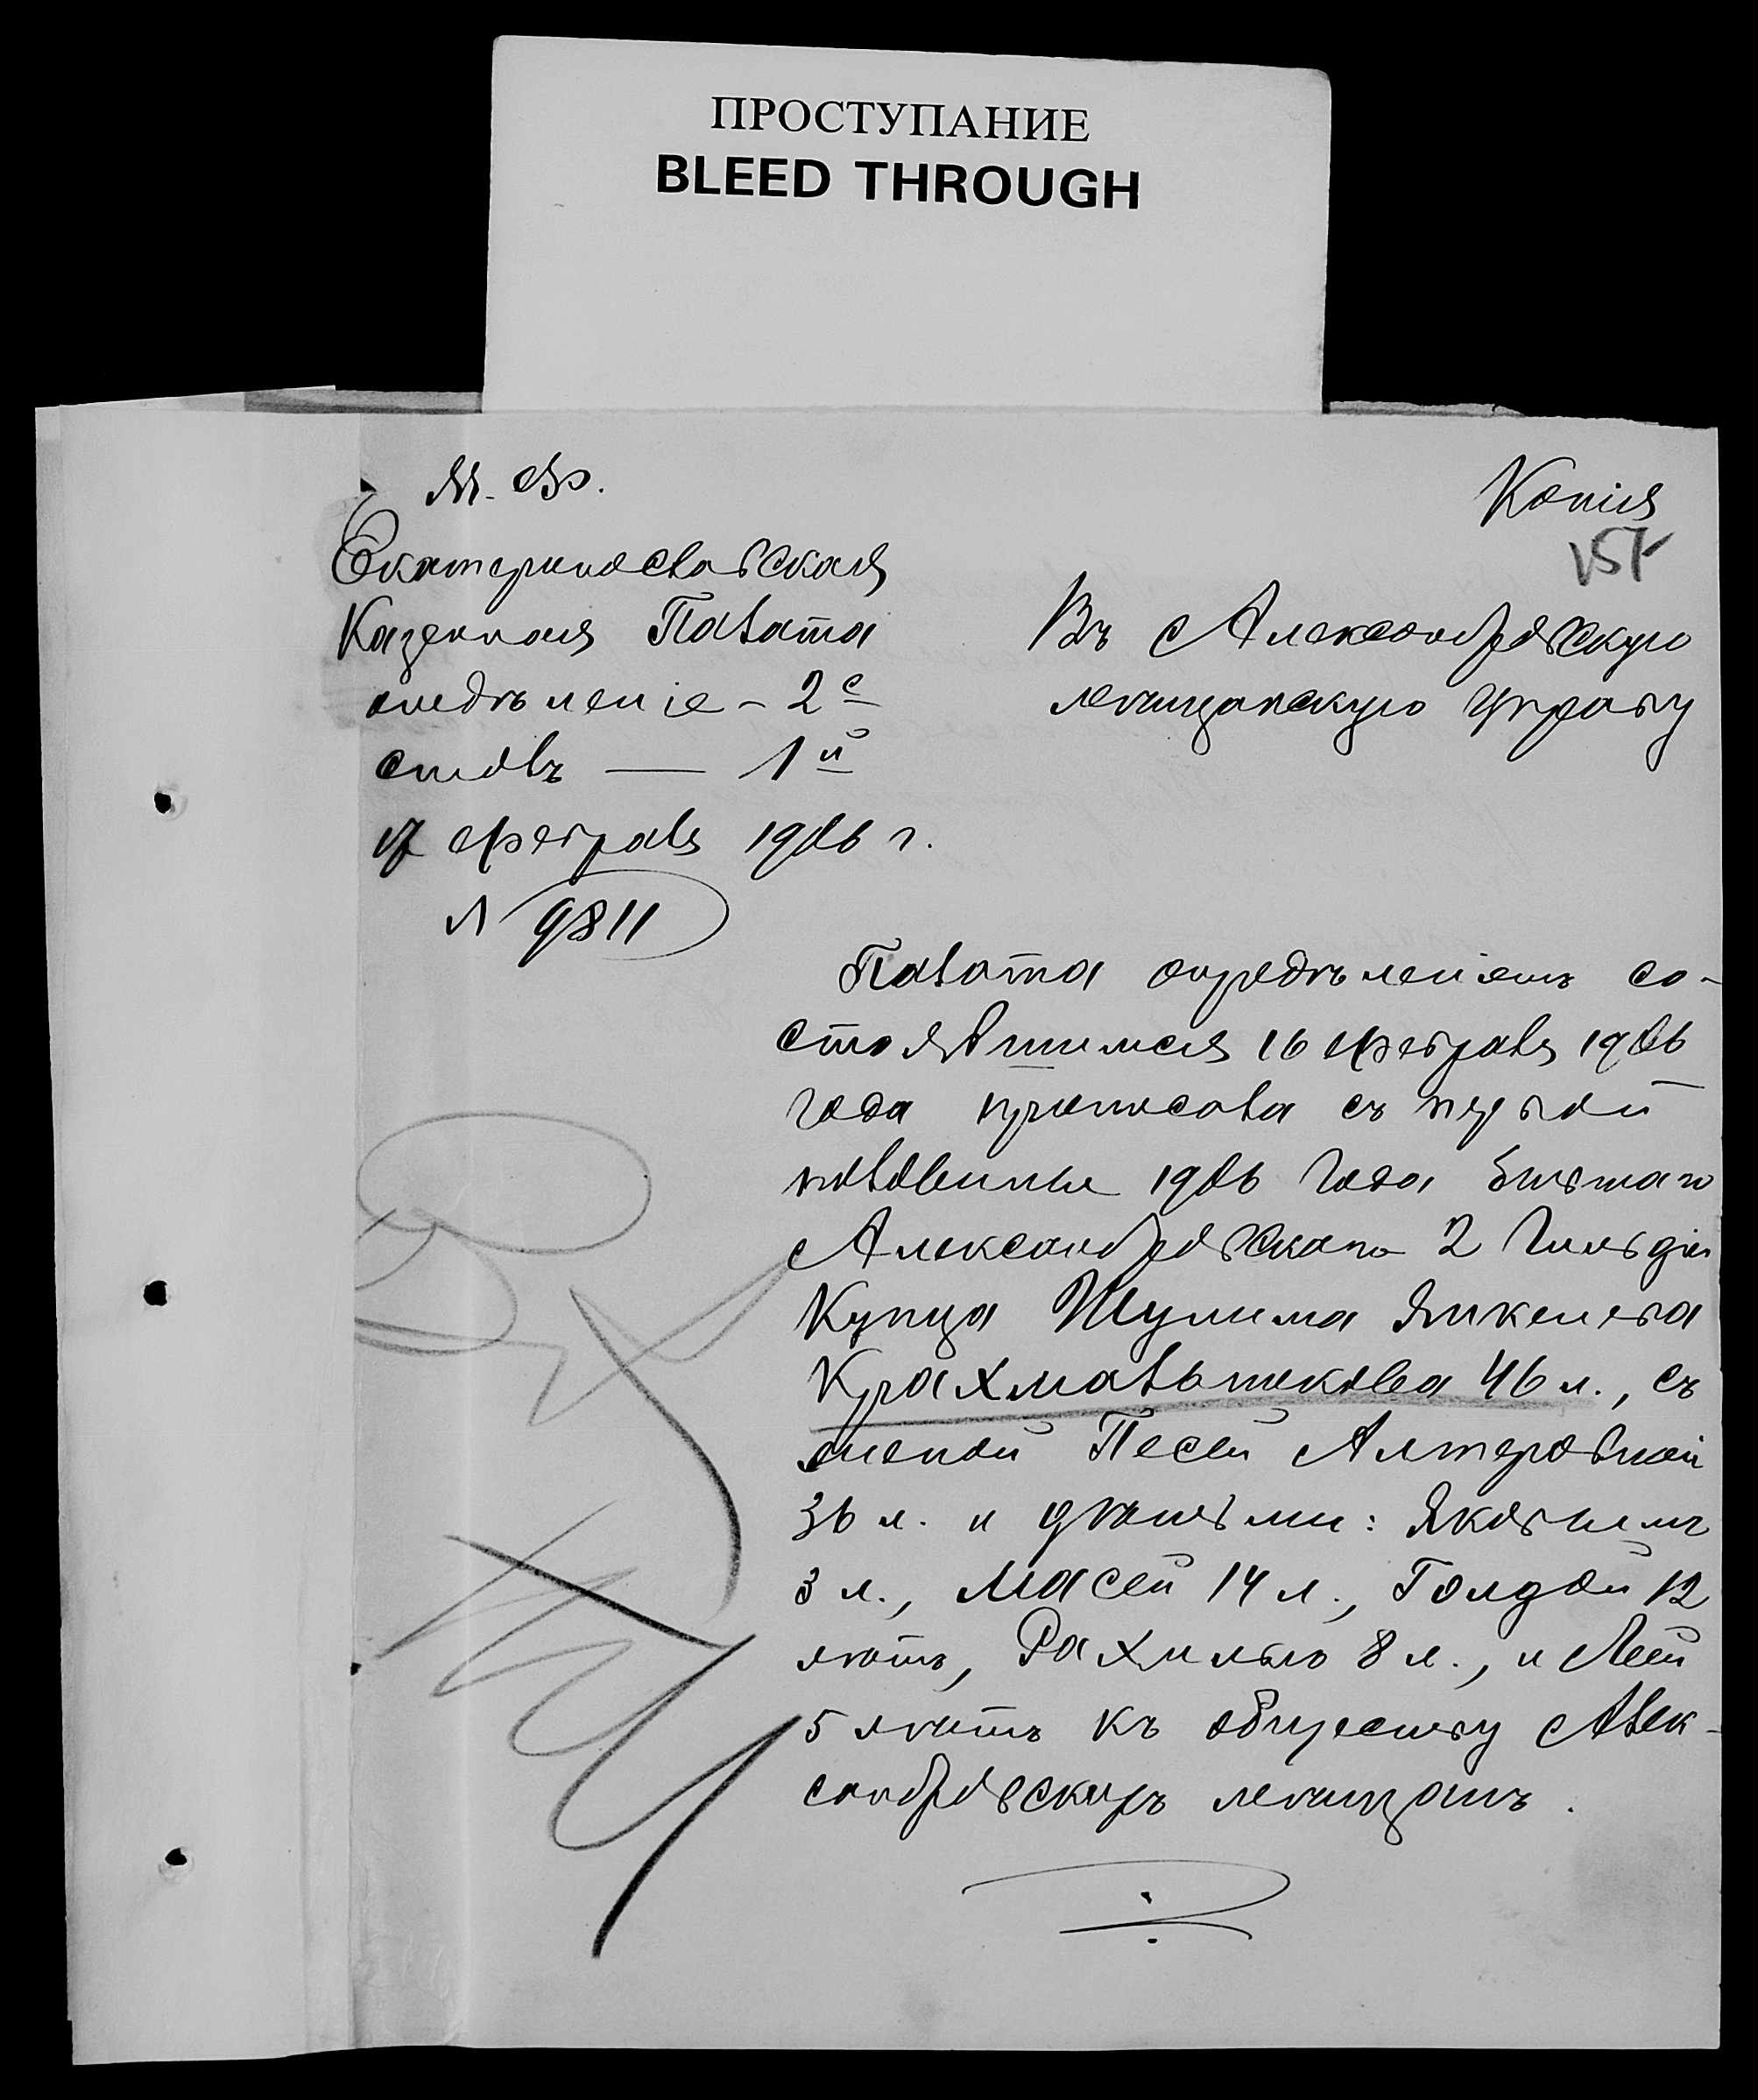 ПРОСТУПАНИЕ
BLEED THROUGH
М. Ф.
Копія
Екатеринославская
Казенная Палата
отдѣленіе – 2е
столъ — 1й
17 февраля 1906 г.
№ 9811
Въ Александровскую
мещанскую Управу
Палата опредѣленіемъ со-
стоявшимся 16 февраля 1906
года приписала съ первой
половины 1906 года бывшаго
Александровскаго 2 гильдіи
Купца Шулима Янкелева
Крахмальникова 46 л., съ
женой Песей Алтеровной
36 л. и дѣтьми: Яковымъ
3 л., Масей 14 л., Голдой 12
лѣтъ, Рахилью 8 л., и Леей
5 лѣтъ къ обществу Алек-
сандровскихъ мещанъ.